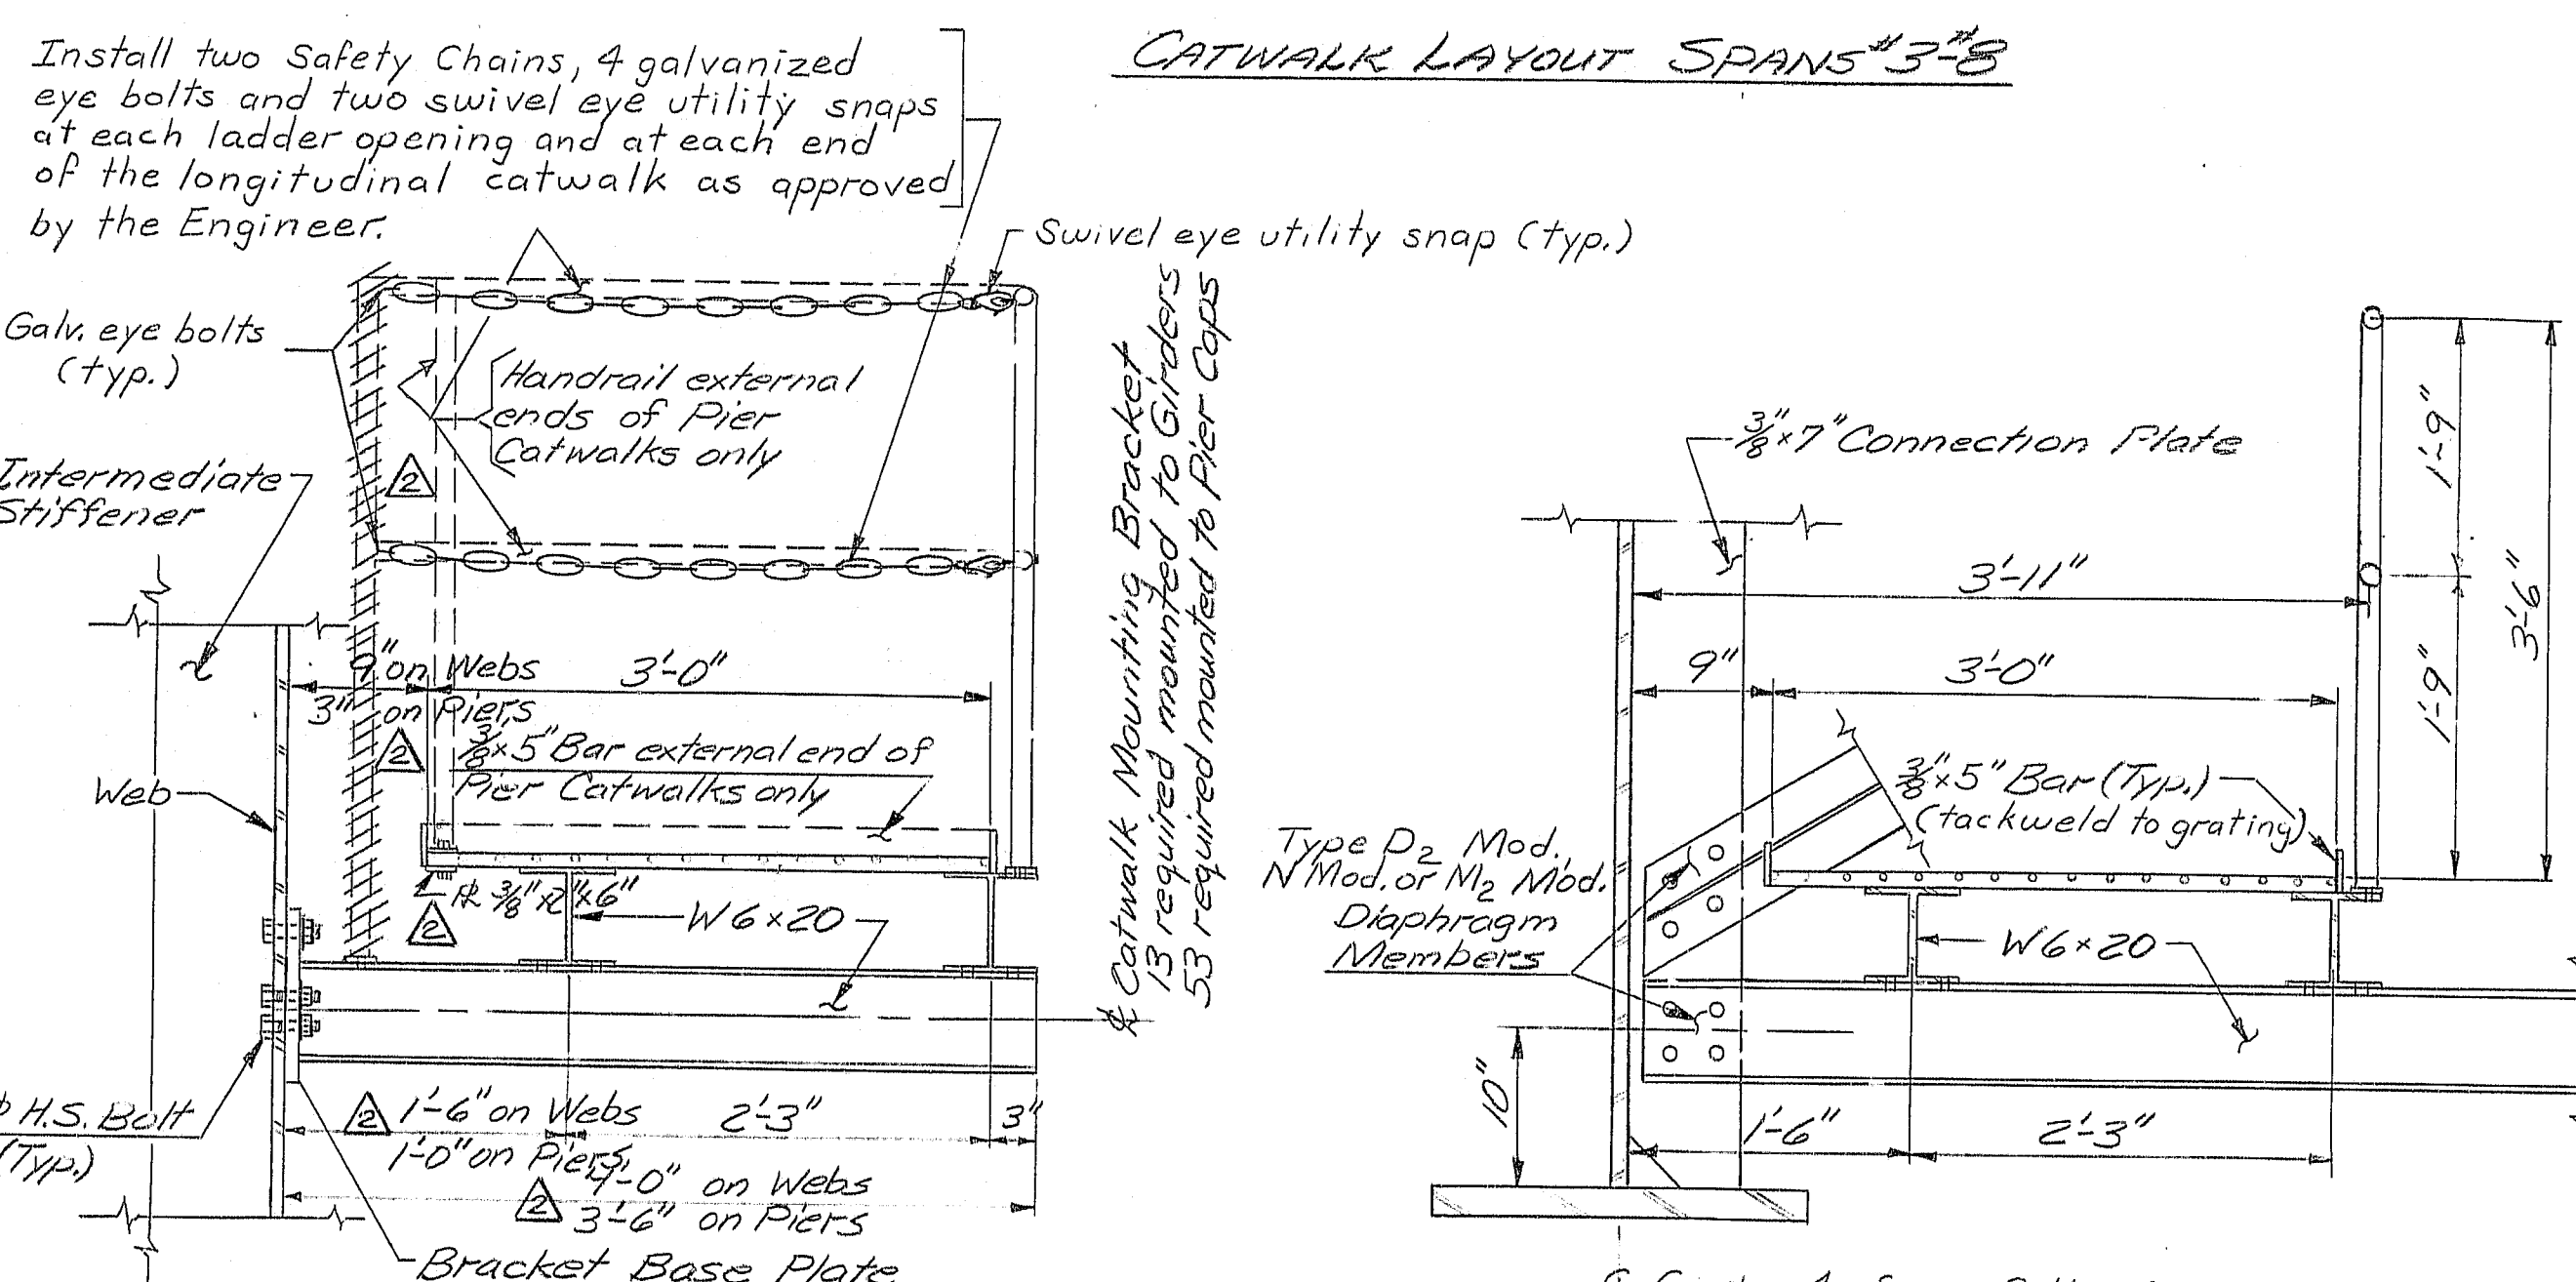 CATWALK LAYOUT SPANS #3-#8
Install two Safety Chains, 4 galvanized
eye bolts and two swivel eye utility snaps
at each ladder opening and at each end
of the longitudinal catwalk as approved
by the Engineer.
Swivel eye utility snap (typ.)
Galv. eye bolts
(typ.)
Handrail external
ends of Pier
Catwalks only
2
Intermediate
Stiffener
9" on Webs
3" on Piers
3'-0"
2
3/8" x 5" Bar external end of
Pier Catwalks only
Web
℄ Catwalk Mounting Bracket
13 required mounted to Girders
53 required mounted to Pier Caps
℄ 3/8" x 2" x 6"
2
W 6 x 20
H.S. Bolt
(Typ.)
2
1'-6" on Webs
1'-0" on Piers
2'-3"
3"
2
4'-0" on Webs
3'-6" on Piers
Bracket Base Plate
3/8" x 7" Connection Plate
3'-11"
9"
3'-0"
1'-9"
1'-9"
3'-6"
3/8" x 5" Bar (Typ.)
(tackweld to grating)
Type D2 Mod.
N Mod. or M2 Mod.
Diaphragm
Members
W 6 x 20
10"
1'-6"
2'-3"